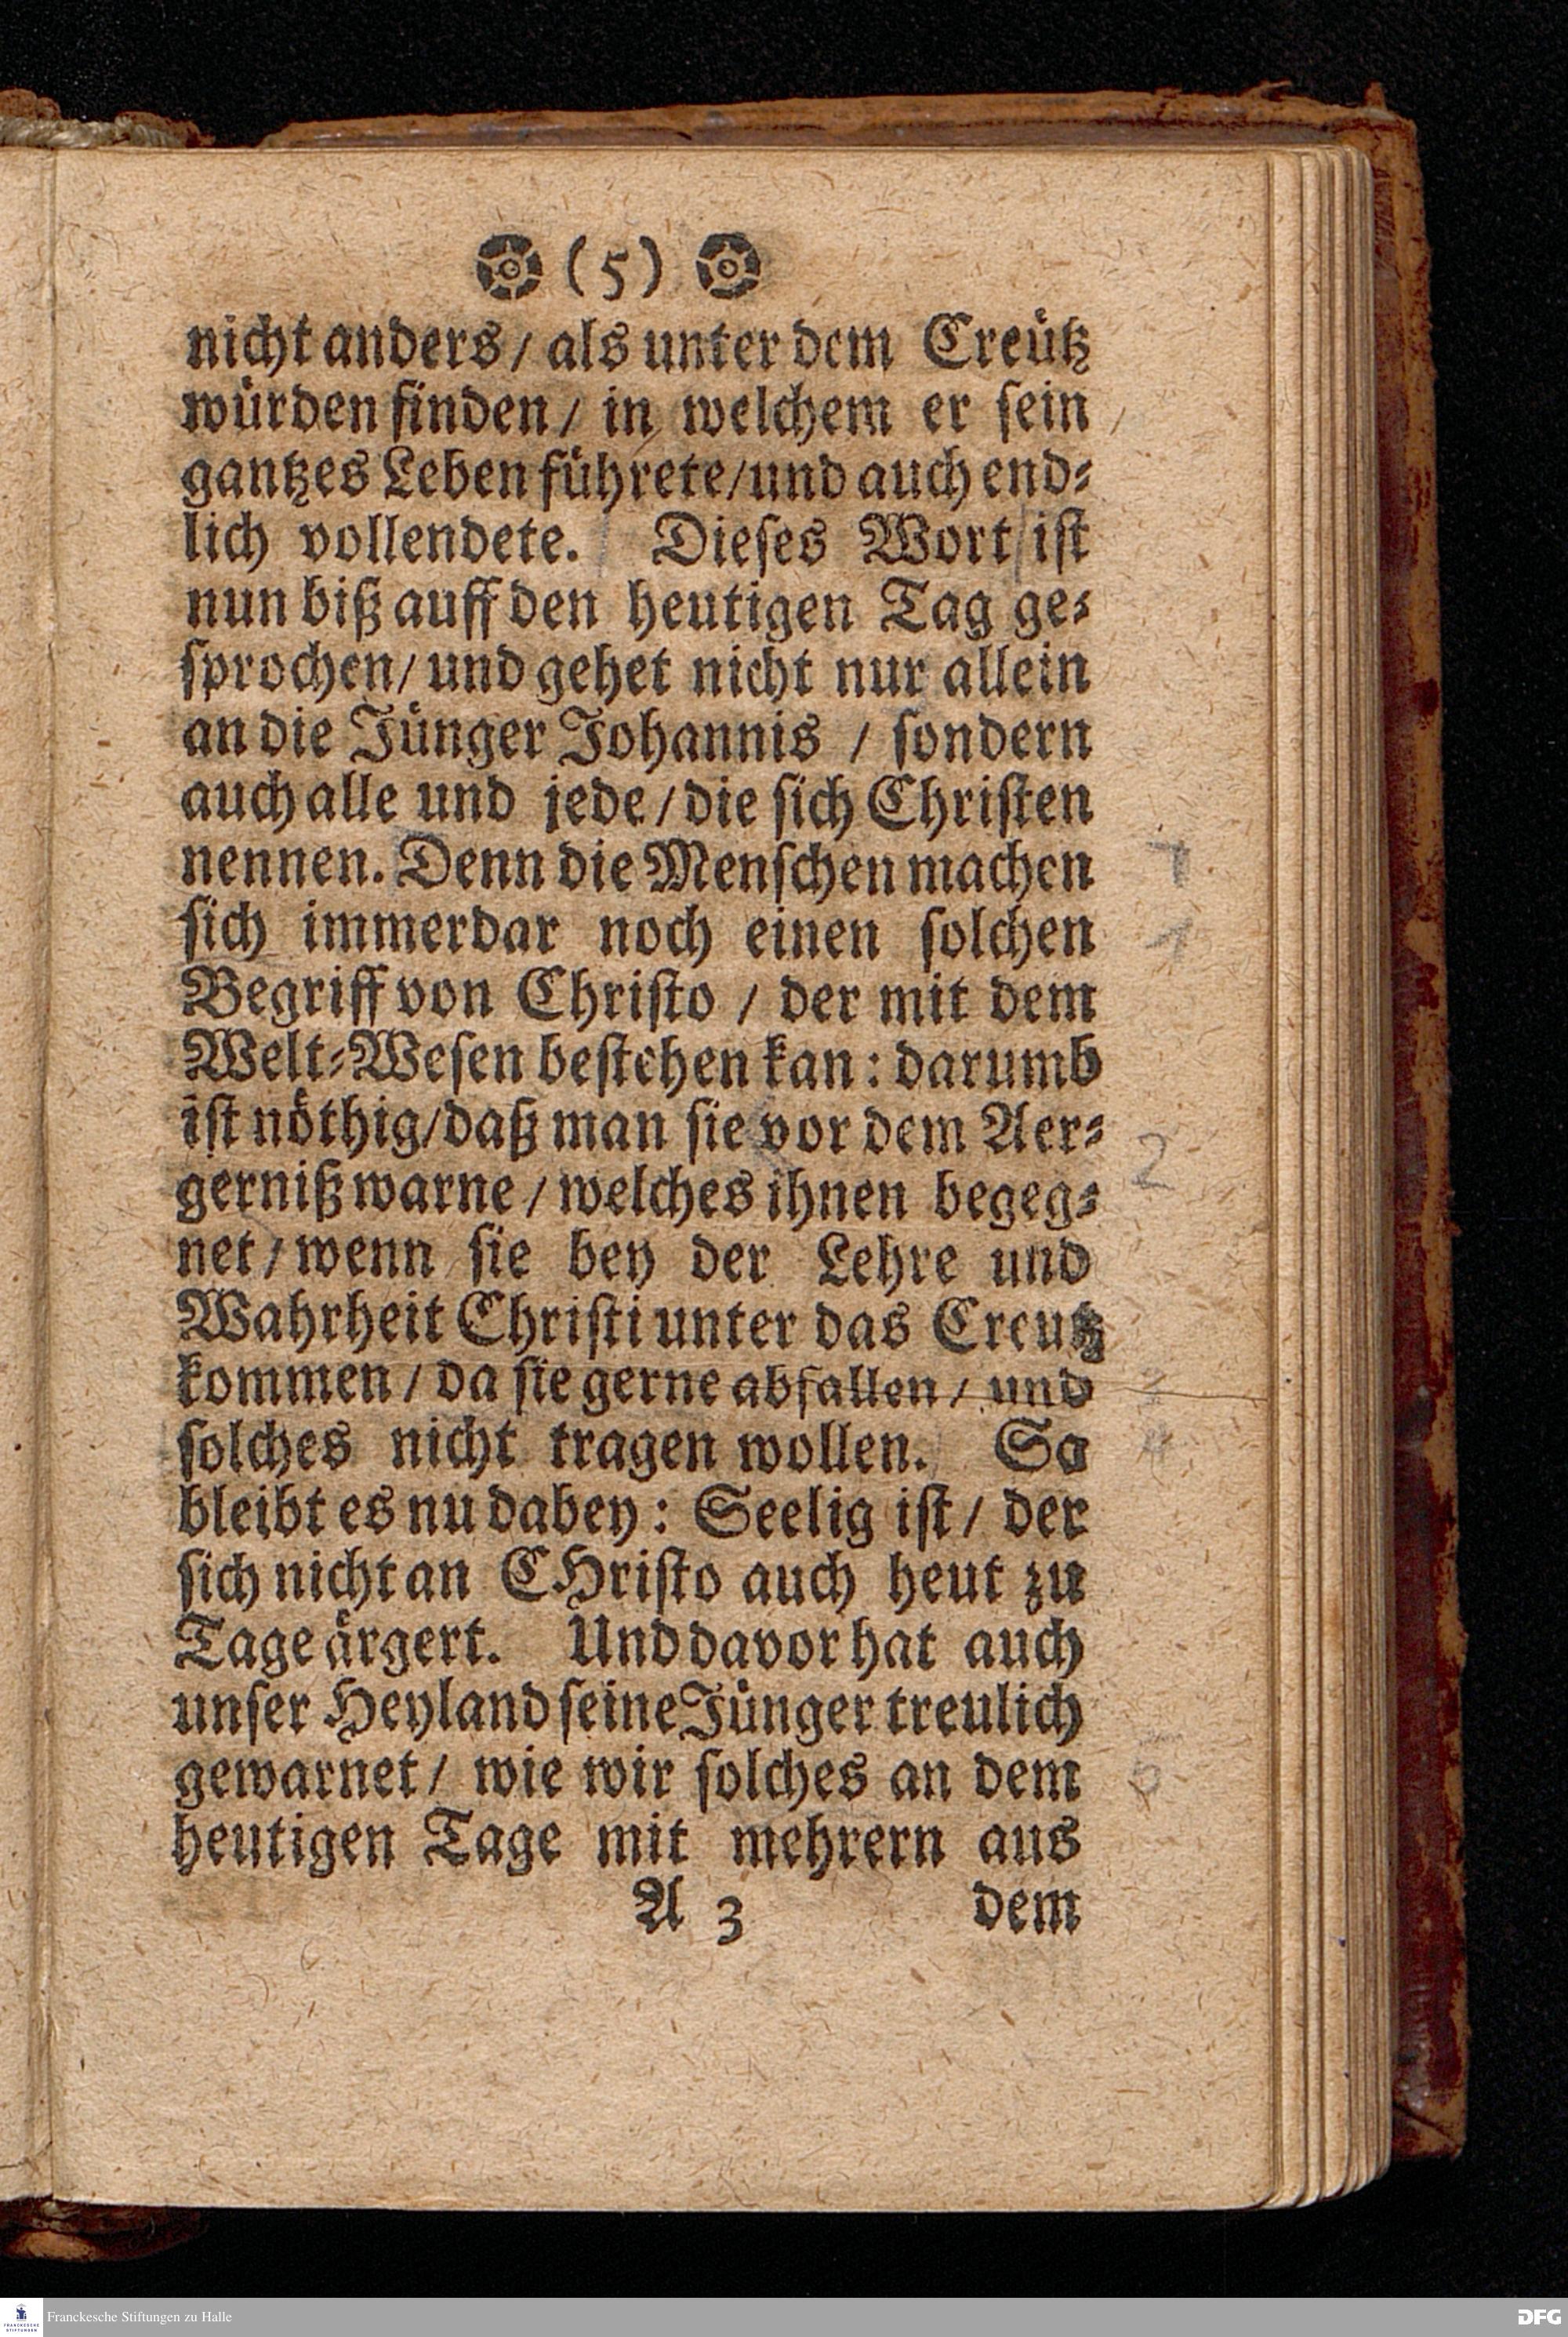 (5)
nicht anders / als unter dem Creütz
würden finden / in welchem er sein
gantzes Leben führete / und auch end-
lich vollendete. Dieses Wort ist
nun biß auff den heutigen Tag ge-
sprochen / und gehet nicht nur allein
an die Jünger Johannis / sondern
auch alle und jede / die sich Christen
nennen. Denn die Menschen machen
sich immerdar noch einen solchen
Begriff von Christo / der mit dem
Welt-Wesen bestehen kan: darumb
ist nöthig / daß man sie vor dem Aer-
gerniß warne / welches ihnen begeg-
net / wenn sie bey der Lehre und
Wahrheit Christi unter das Creutz
kommen / da sie gerne abfallen / und
solches nicht tragen wollen. So
bleibt es nu dabey: Seelig ist / der
sich nicht an CHristo auch heut zu
Tage ärgert. Und davor hat auch
unser Heyland seine Jünger treulich
gewarnet / wie wir solches an dem
heutigen Tage mit mehrern aus
A 3 dem
1
2
4
5
Franckesche Stiftungen zu Halle
DFG